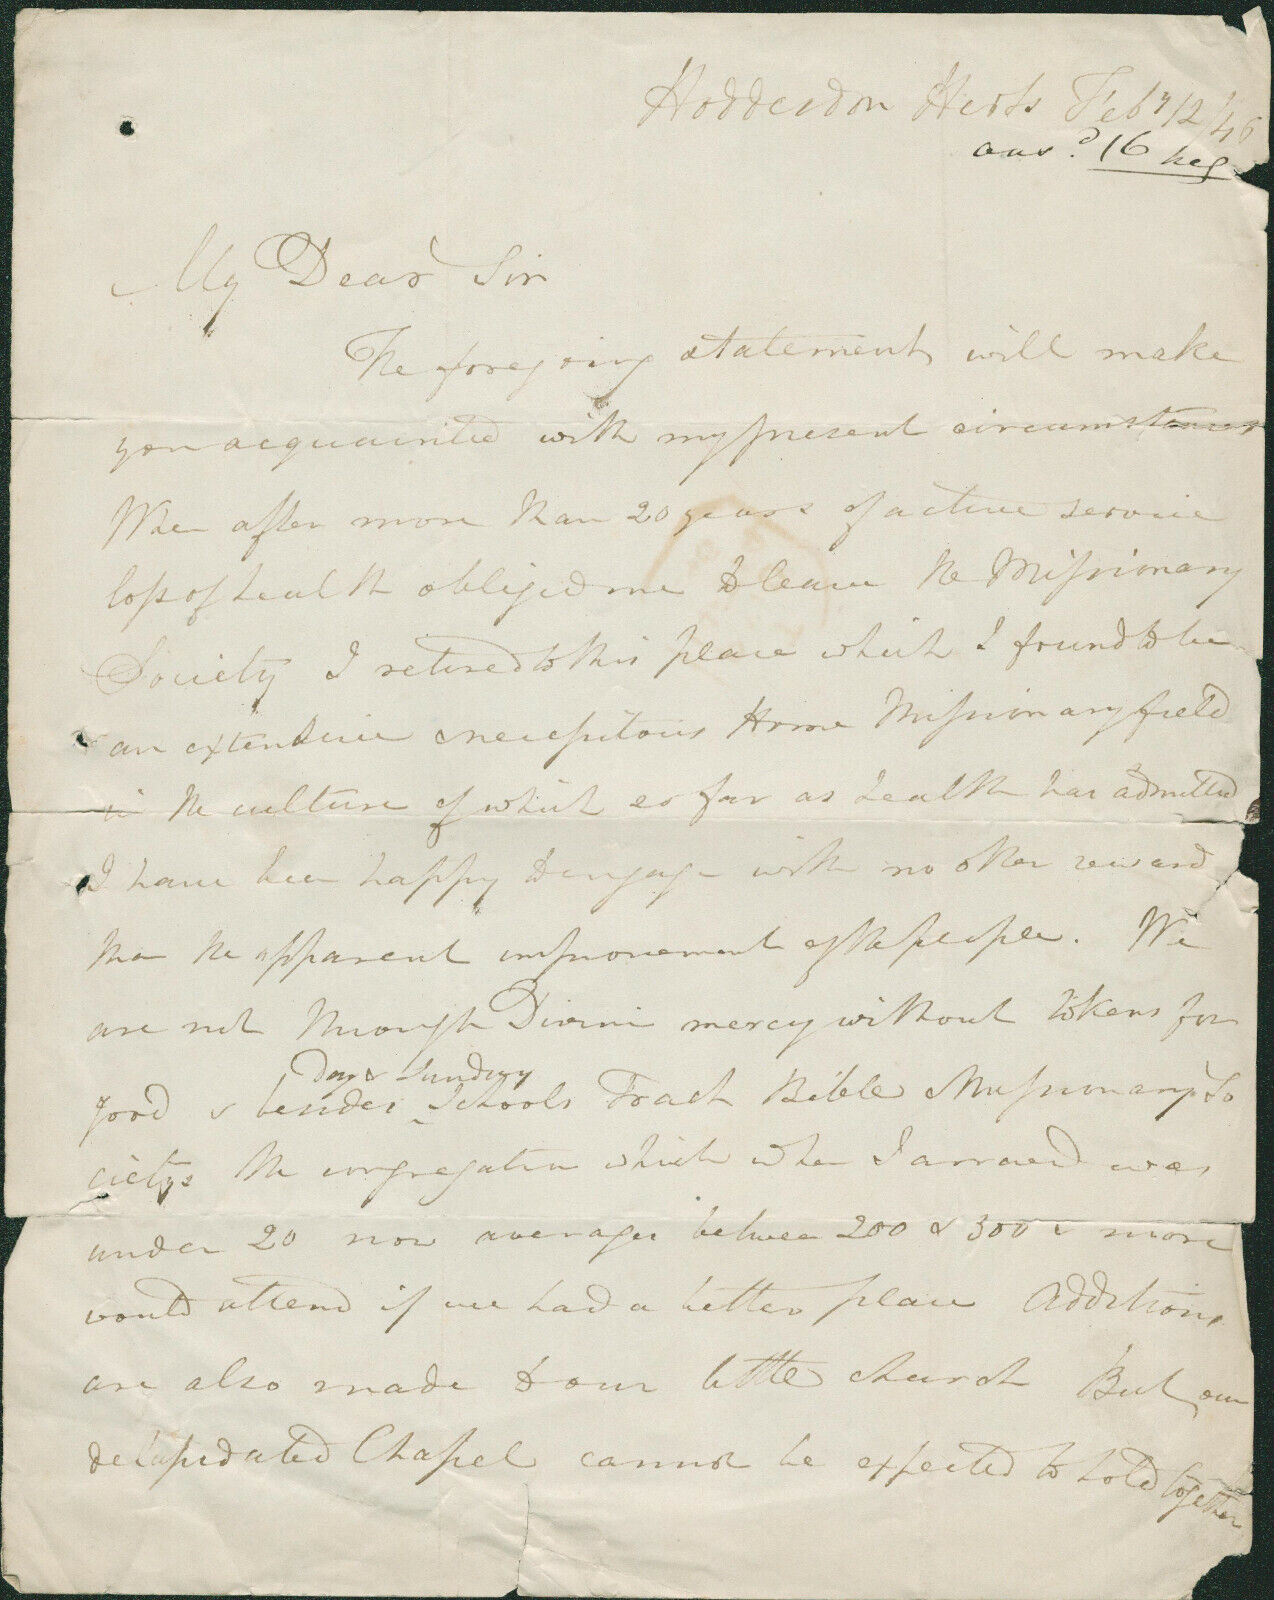 Hoddesdon Herts Feby 12/46
ansd. 16 neg
My Dear Sir
The foregoing statement will make
you acquainted with my present circumstances
When after more than 20 years of active service
loss of health obliged me to leave the Missionary
Society I retired to this place which I found to be
an extensive & necessitous Home Missionary field
in the culture of which so far as health has admitted
I have been happy to engage with no other reward
than the apparent improvement of the people. We
are not through Divine mercy without tokens for
Day & Sunday
good & besides Schools Tract Bible & Missionary So
cietys the congregation which when I arrived was
under 20 now averages between 200 & 300 & more
would attend if we had a better place Additions
are also made to our little church But our
delapidated Chapel cannot be expected to hold together